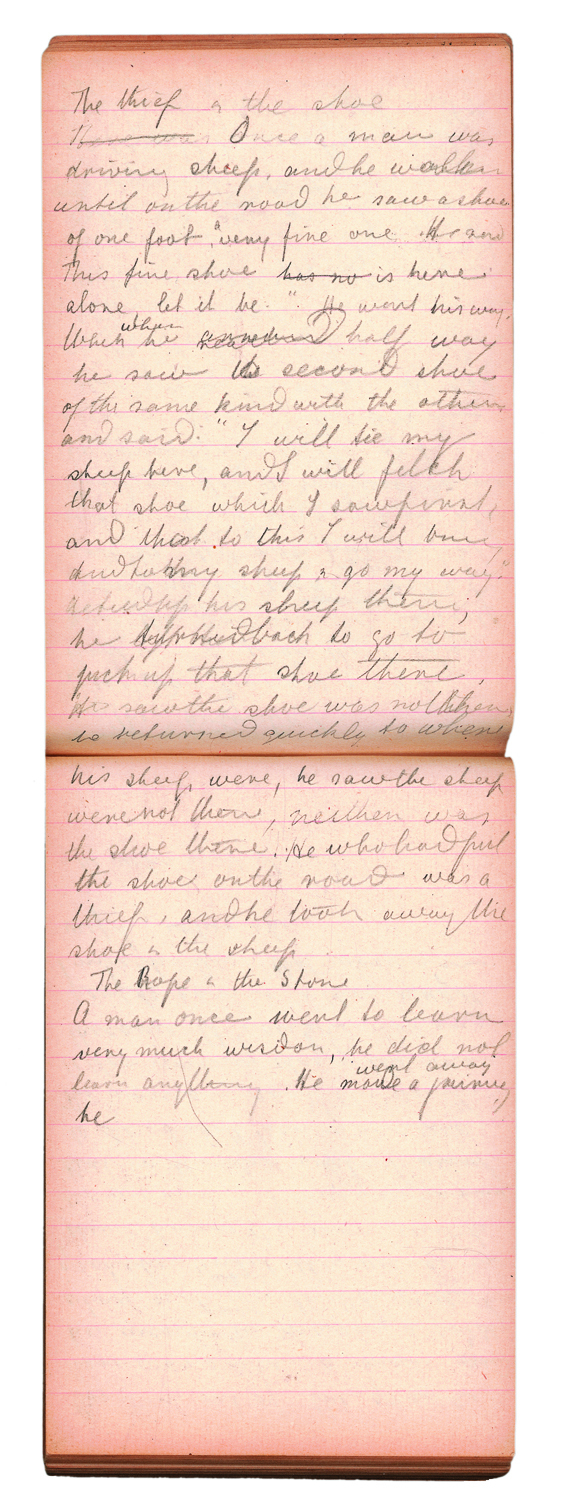 The thief & the shoe
There was Once a man was
driving sheep, and he walked
until on the road he saw a shoe
of one foot, a very fine one. He said
This fine shoe has no is here
alone, let it be." He went his way.
When he when half way
he saw the second shoe
of the same kind with the other,
and said: "I will tie my
sheep here, and I will fetch
that shoe which I saw first,
and that to this I will bring
and take my sheep & go my way."
He tied up his sheep there,
he back to go to
pick up that shoe there,
He saw the shoe was not there,
returned quickly to where
his sheep were, he saw the sheep
were not there, neither was
the shoe there. He who had put
the shoe on the road was a
thief, and he took away the
shoe & the sheep
The Rope & the Stone
A man once went to learn
very much wisdom, he did not
learn anything. He went away made a journey
he